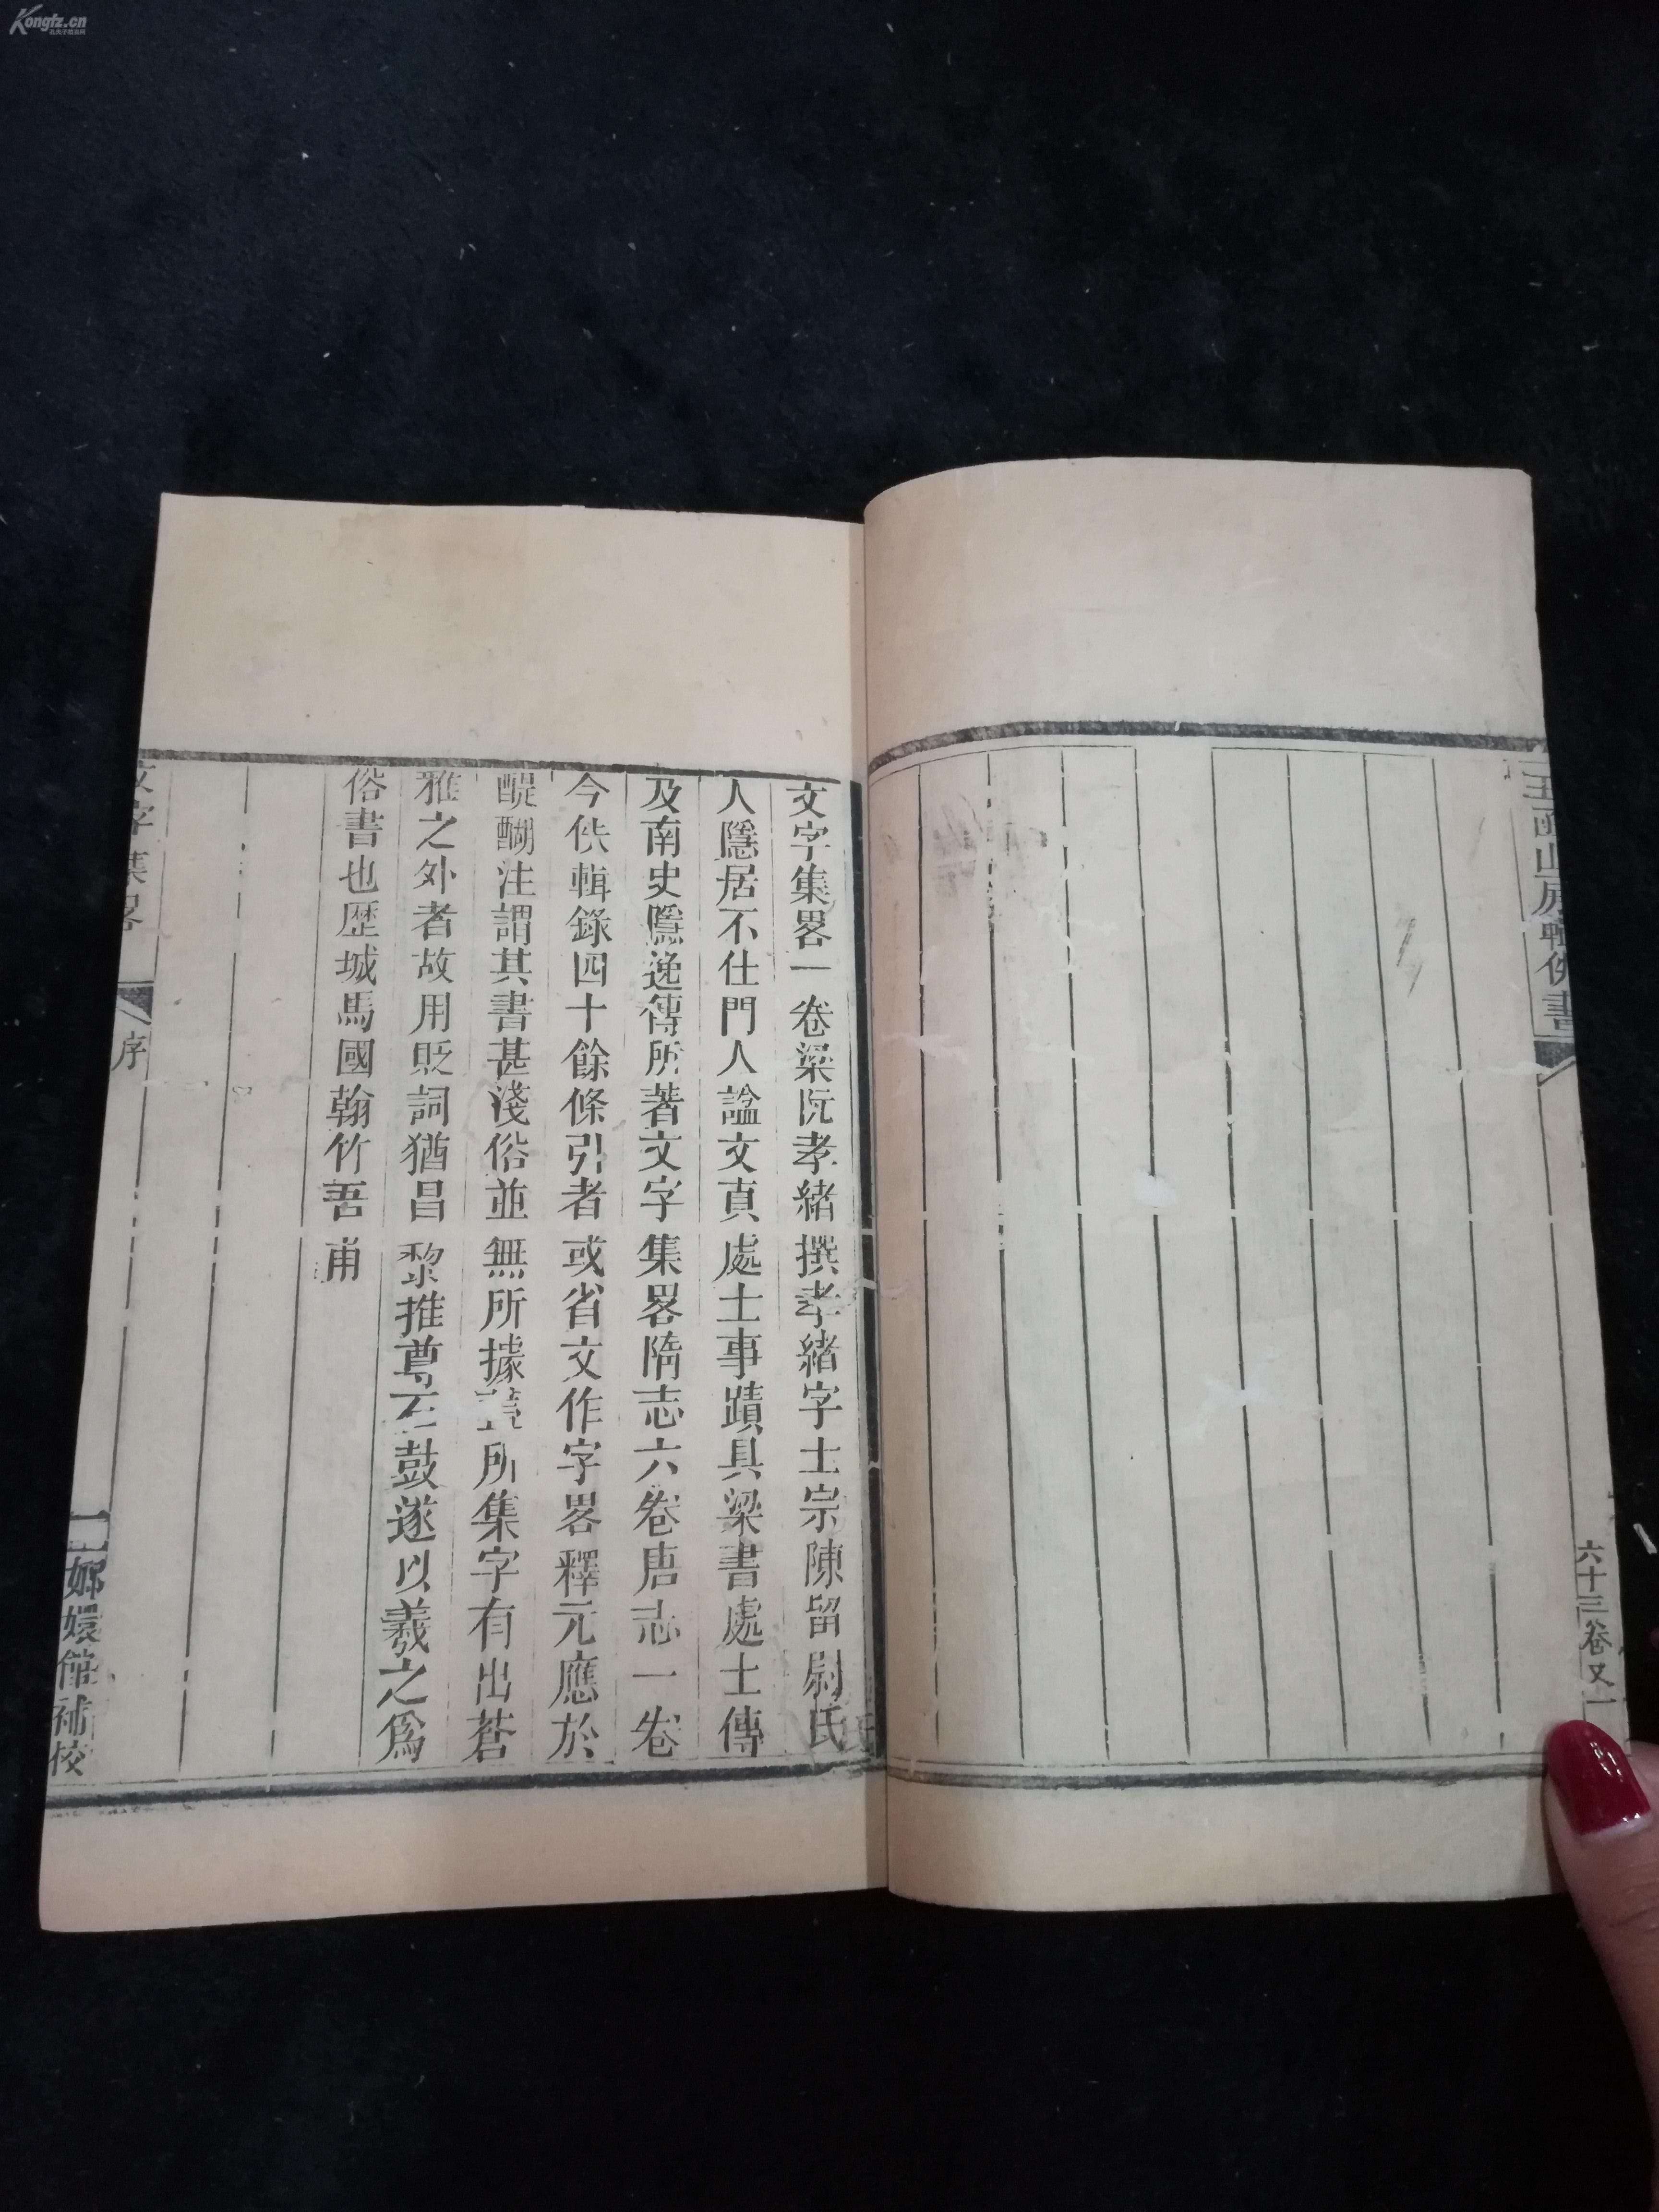 Kongfz.cn
孔夫子旧书网
玉函山房輯佚書
六十三卷又一
文字集畧一卷梁阮孝緒撰孝緒字士宗陳留尉氏
人隱居不仕門人諡文貞處士事蹟具梁書處士傳
及南史隱逸傳所著文字集畧隋志六卷唐志一卷
今佚輯錄四十餘條引者或省文作字畧釋元應於
醍醐注謂其書甚淺俗並無所據葢所集字有出蒼
雅之外者故用貶詞猶昌黎推尊石鼓遂以羲之爲
俗書也歴城馬國翰竹吾甫
文字集畧
序
一
嫏嬛館補校